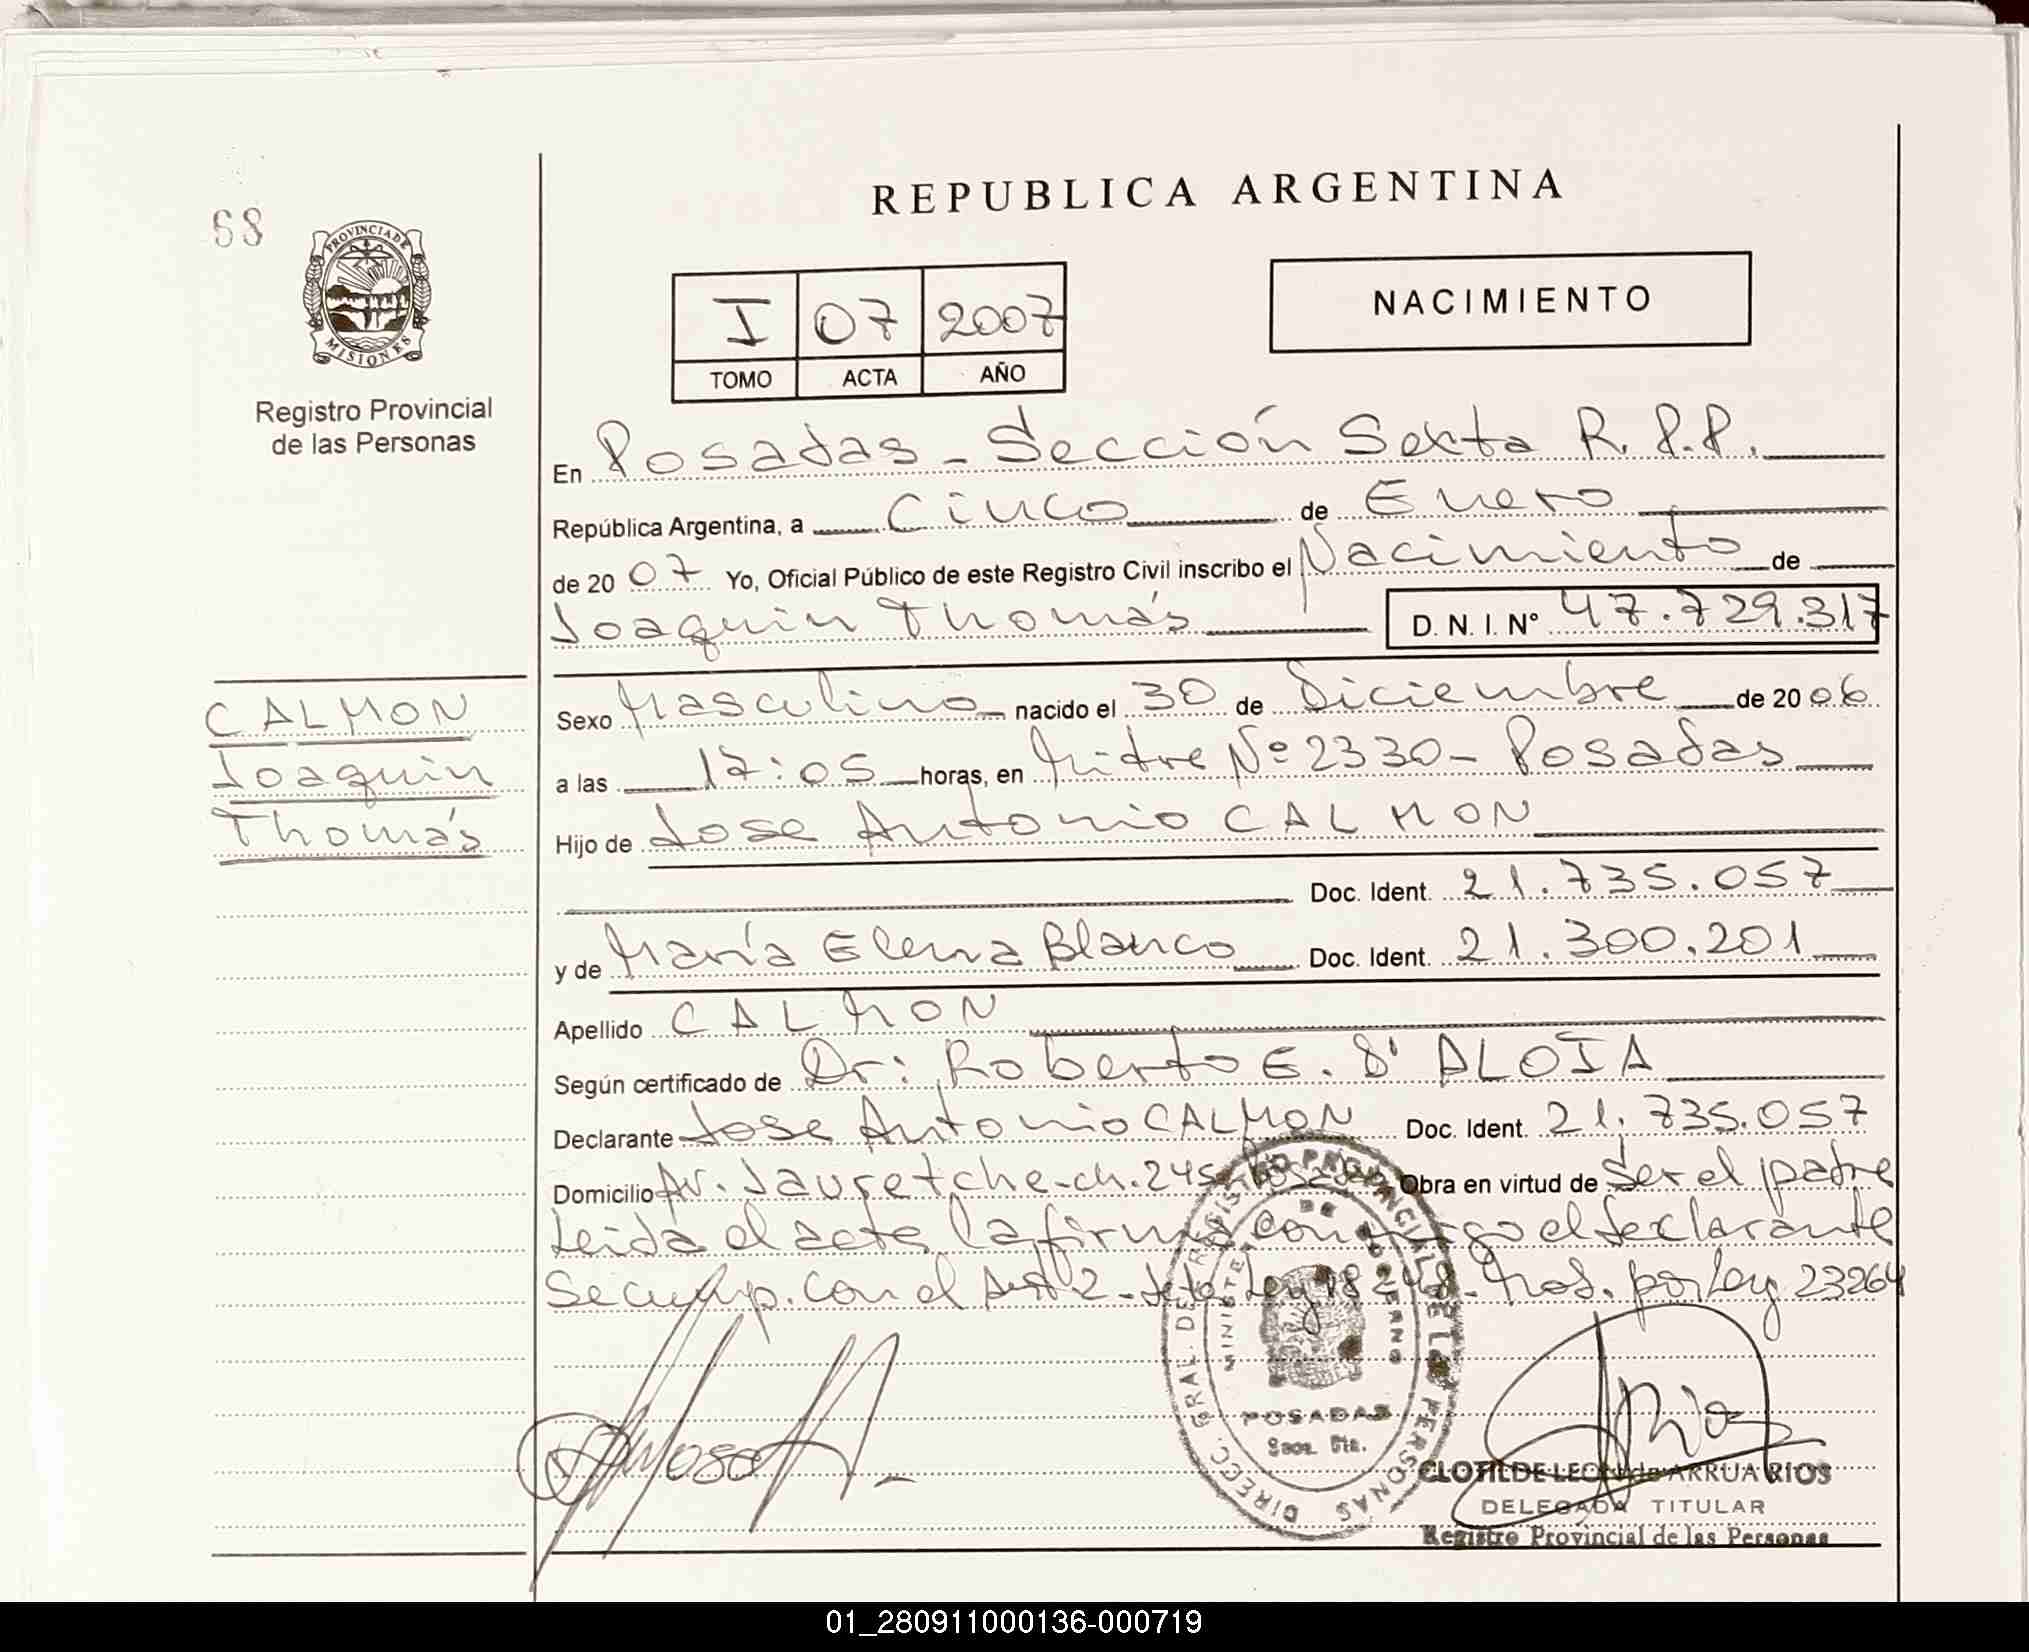 68
PROVINCIA DE
MISIONES
Registro Provincial
de las Personas
REPUBLICA ARGENTINA
I 07 2007
TOMO ACTA AÑO
NACIMIENTO
En Posadas - Sección Sexta R.P.P.
República Argentina, a Cinco de Enero
de 20 07 Yo, Oficial Público de este Registro Civil inscribo el Nacimiento de
Joaquin Thomás D. N. I. Nº 47.729.317
CALMON
Joaquin
Thomás
Sexo Masculino nacido el 30 de Diciembre de 20 06
a las 17:05 horas, en Mitre Nº 2330 - Posadas
Hijo de Jose Antonio CALMON
Doc. Ident. 21.735.057
y de María Elena Blanco Doc. Ident. 21.300.201
Apellido CALMON
Según certificado de Dr: Roberto E. D' ALOIA
Declarante Jose Antonio CALMON Doc. Ident. 21.735.057
Domicilio Av. Jauretche - ch. 245 Obra en virtud de Ser el padre
Leida el acta la firma conmigo el declarante
Se cump. con el Art 2 - de la Ley 18248 - Mod. por Ley 23264
DIRECC. GRAL. DEL REGISTRO PROVINCIAL DE LAS PERSONAS
MINISTERIO DE GOBIERNO
POSADAS
Secc. 6ta.
CLOTILDE LEON de ARRUA RIOS
DELEGADA TITULAR
Registro Provincial de las Personas
01_280911000136-000719